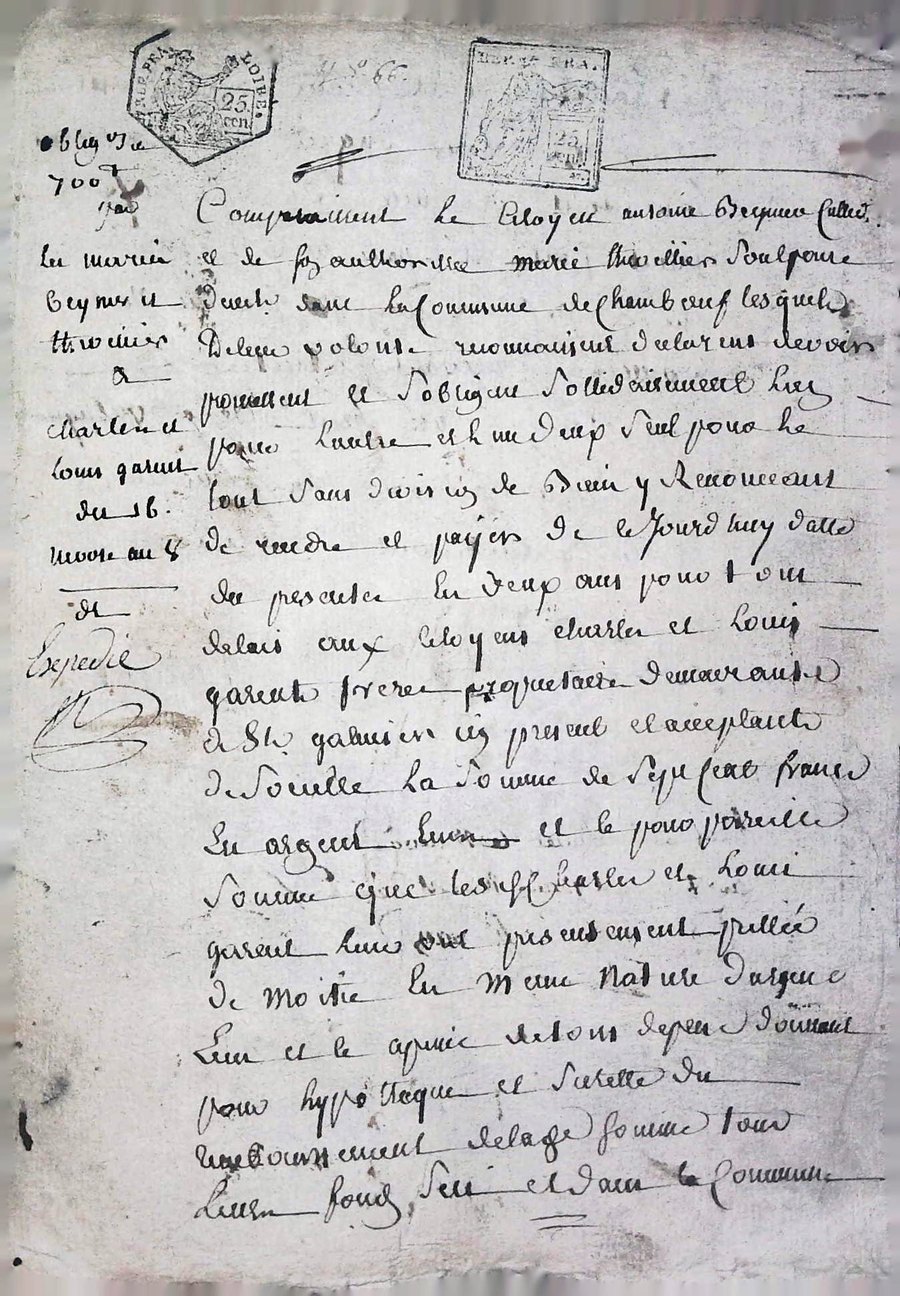 REP. FRA. LOIRE.
25 cen
N.° 66.
REP. FRA.
25 cent
oblig on de
700 #
par
les mariés
beynier et
thevellier
a
charles et
louis garent
du 16.
nivose an 8
dt
Expedié
Comparaissent le Citoyen antoine Cultiv.
et de soy authorisée marie thevellier Soulponce
dans la Commune de Chambœuf lesquels
De leur volonté reconnaissent declarent devoir
promettent et Sobligent Sollidairement lun
pour lautre et lun deux Seul pour le
tout Sans division de Bien y Renoncant
de rendre et payer de ce Jourdhuy datte
des presentes En deux ans pour tout
delais aux Citoyens charles et Louis
garent freres propriétaire demeurants
de St. galmier icy present et acceptants
Scavoir La Somme de Sept Cent francs
En argent et ce pour pareille
Somme que les Charles et Louis
garent leur ont presentement prettée
de moitié En meme Nature dargent
Lun et le de tous depend donnant
pour hypotteque et Surette du
remboursement de lade somme tous
Leurs fonds Sis et dans la Commune